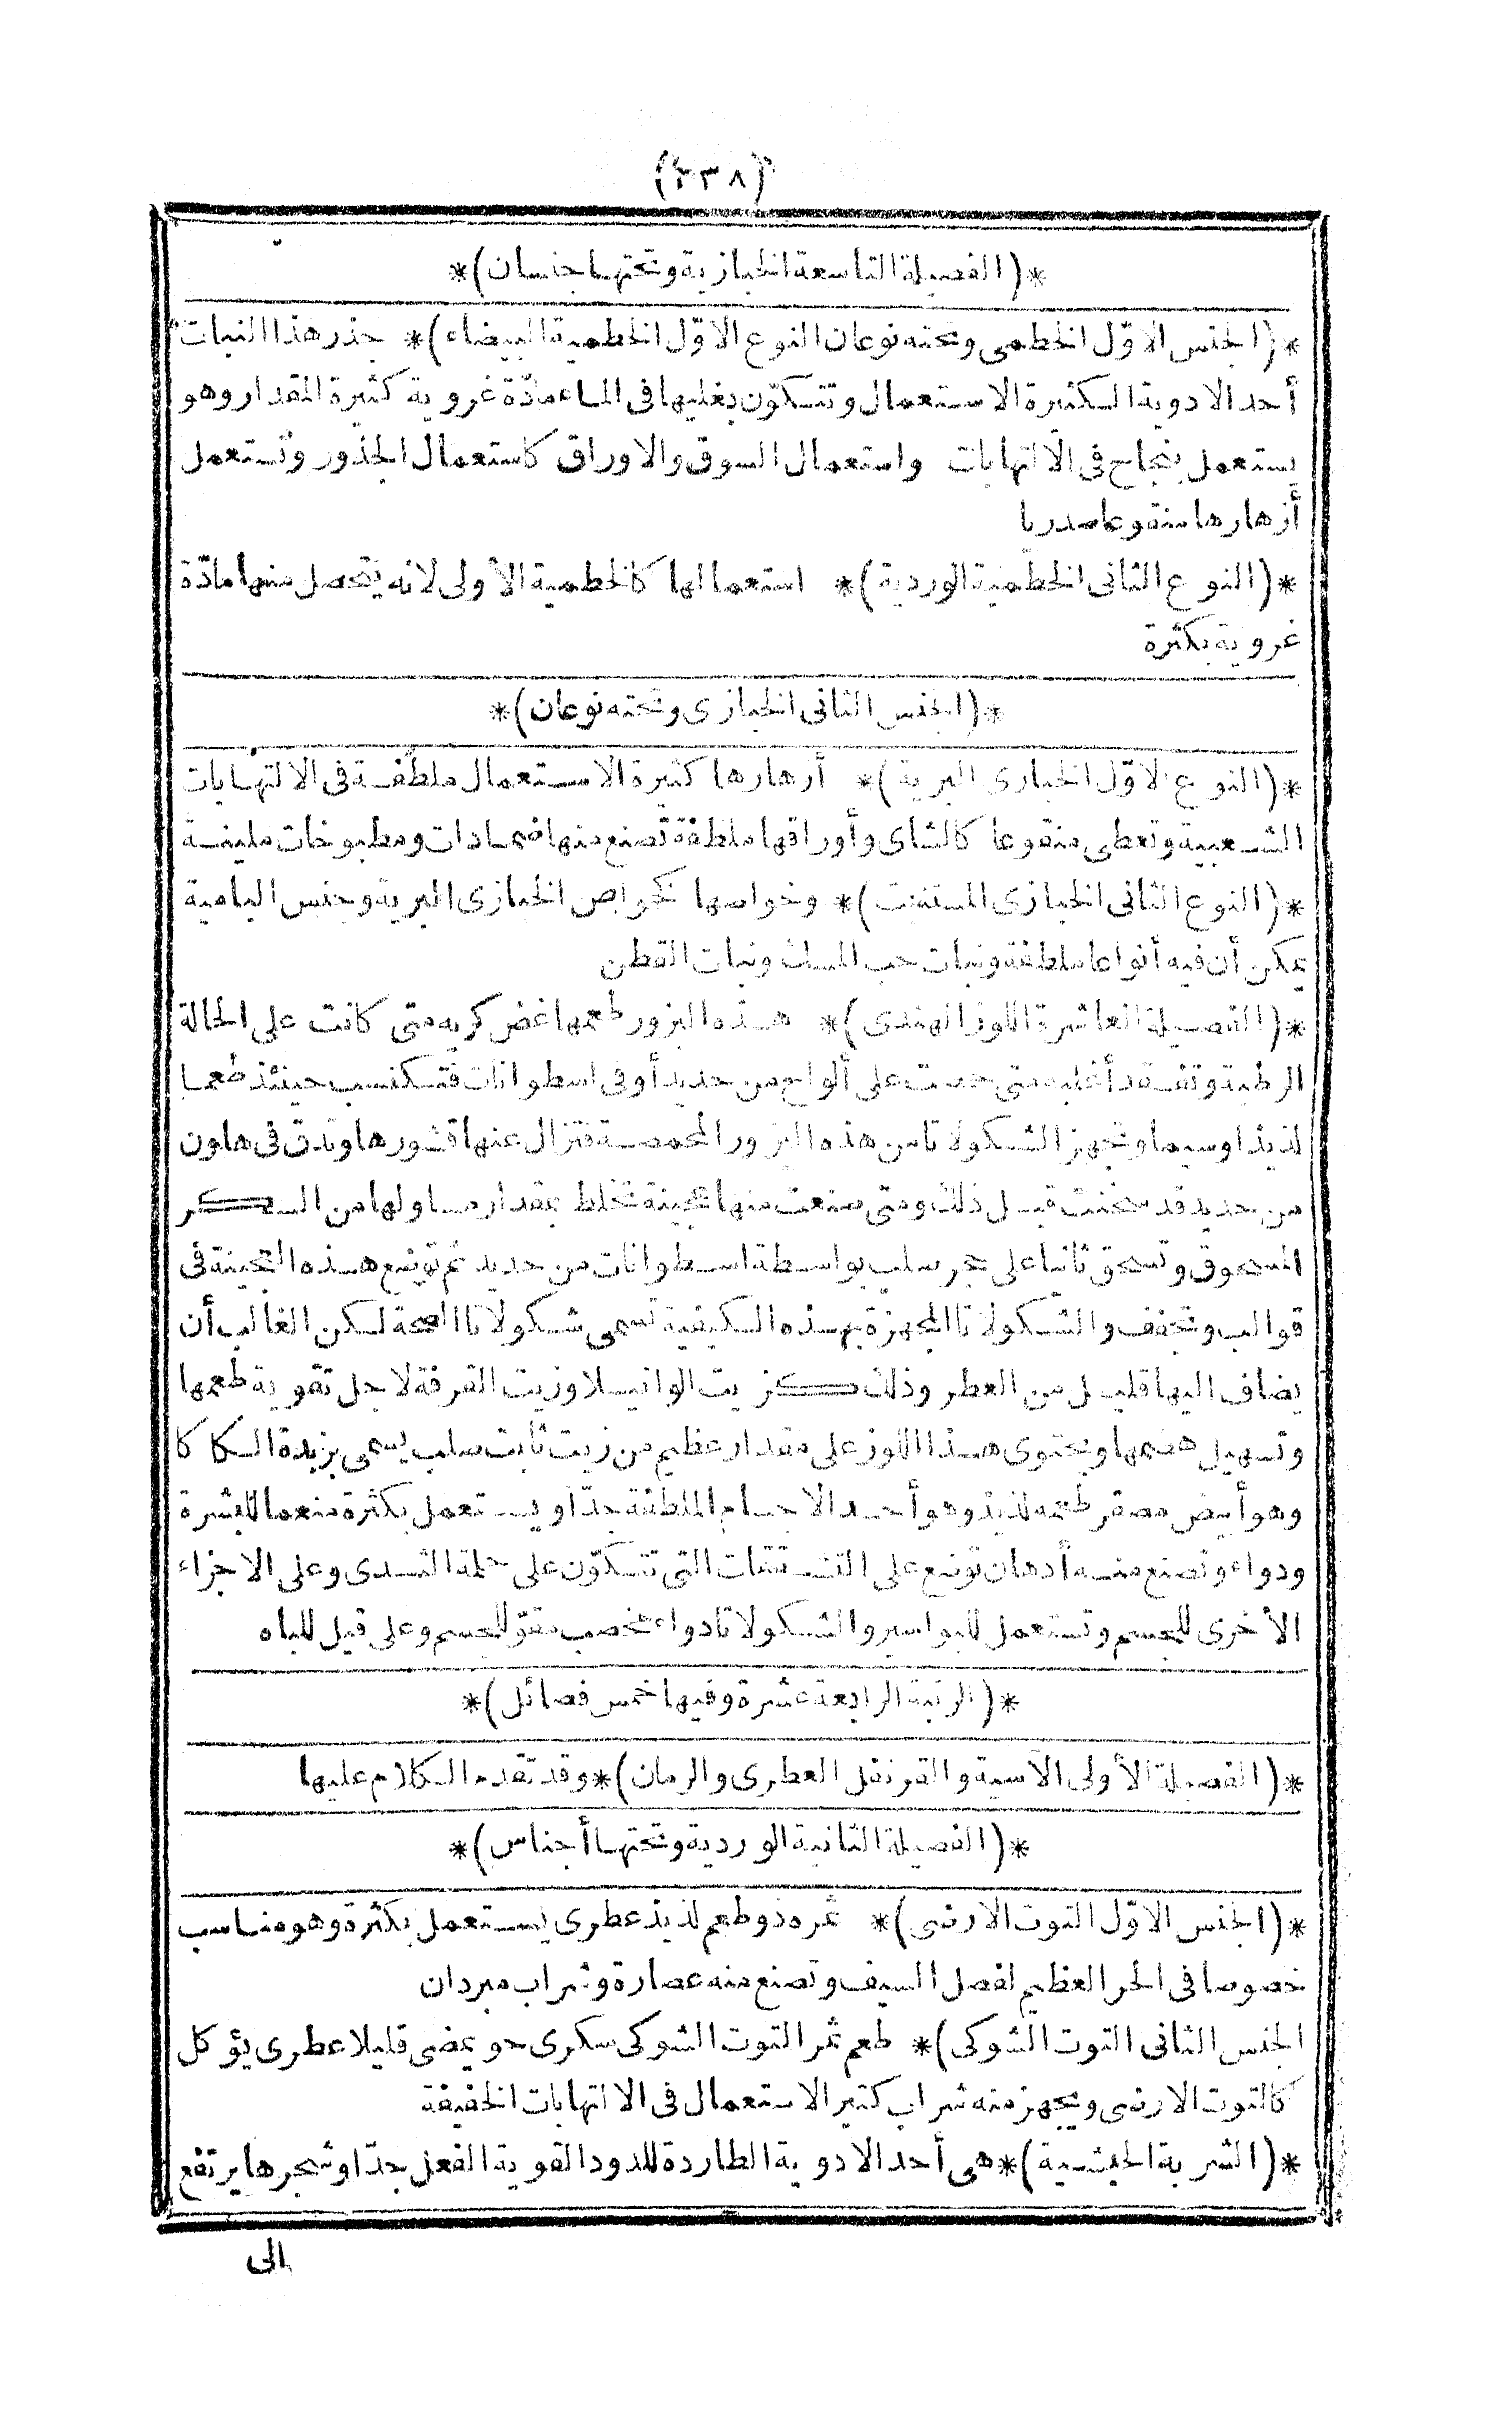 (٢٣٨)
*(الفصيلة التاسعة الخبازية وتحتها جنسان)*
*(الجنس الاوّل الخطمى وتحته نوعان النوع الاوّل الخطمية البيضاء)* جذر هذا النبات
أحد الادوية الكثيرة الاستعمال وتتكوّن بغليها فى الماء مادّة غروية كثيرة المقدار وهو
يستعمل بنجاح فى الالتهابات واستعمال السوق والاوراق كاستعمال الجذور وتستعمل
أزهارها منقوعا صدريا
*(النوع الثانى الخطمية الوردية)* استعمالها كالخطمية الأولى لانه يتحصل منها مادّة
غروية بكثرة
*(الجنس الثانى الخبازى وتحته نوعان)*
*(النوع الاوّل الخبازى البرية)* أزهارها كثيرة الاستعمال ملطفة فى الالتهابات
الشعبية وتعطى منقوعا كالشاى وأوراقها ملطفة تصنع منها ضمادات ومطبوخات ملينة
*(النوع الثانى الخبازى المستنبت)* وخواصها كخواص الخبازى البرية وجنس البامية
يمكن أن فيه أنواعا ملطفة ونبات حب المسك ونبات القطن
*(الفصيلة العاشرة اللوز الهندى)* هذه البزور طعمها غض كريه متى كانت على الحالة
الرطبة وتفقد أغلبه متى حمست على ألواح من حديد أو فى اسطوانات فتكتسب حينئذ طعما
لذيذا وسيما وتجهز الشكولاتا من هذه البزور المحمصة فتزال عنها قشورها وتدق فى هاون
من حديد قد سخنت قبل ذلك ومتى صنعت منها عجينة تخلط بمقدار مساو لها من السكر
المسحوق وتسحق ثانيا على حجر صلب بواسطة اسطوانات من حديد ثم توضع هذه العجينة فى
قوالب وتجفف والشكولاتا المجهزة بهذه الكيفية تسمى شكولاتا الصحة لكن الغالب أن
يضاف اليها قليل من العطر وذلك كزيت الوانيلا وزيت القرفة لاجل تقوية طعمها
وتسهيل هضمها ويحتوى هذا اللوز على مقدار عظيم من زيت ثابت صلب يسمى بزبدة الكاكا
وهو أبيض مصفر طعمه لذيذ وهو أحد الاجسام الملطفة جدّا ويستعمل بكثرة منعما للبشرة
ودواء وتصنع منه أدهان توضع على التشققات التى تتكوّن على حلمة الثدى وعلى الاجزاء
الأخرى للجسم وتستعمل للبواسير والشكولاتا دواء مخصب مقوّ للجسم وعلى قيل للباه
*(الرتبة الرابعة عشرة وفيها خمس فصائل)*
*(الفصيلة الأولى الآسية والقرنفل العطرى والرمان)* وقد تقدم الكلام عليها
*(الفصيلة الثانية الوردية وتحتها أجناس)*
*(الجنس الاوّل التوت الارضى)* ثمره ذو طعم لذيذ عطرى يستعمل بكثرة وهو مناسب
خصوصا فى الحر العظيم لفصل الصيف وتصنع منه عصارة وشراب مبردان
الجنس الثانى التوت الشوكى)* طعم ثمر التوت الشوكى سكرى حو يمضى قليلا عطرى يؤكل
كالتوت الارضى ويجهز منه شراب كثير الاستعمال فى الالتهابات الخفيفة
*(الشربة الحبشية)* هى أحد الادوية الطاردة للدود القوية الفعل جدّا وشجرها يرتفع
الى